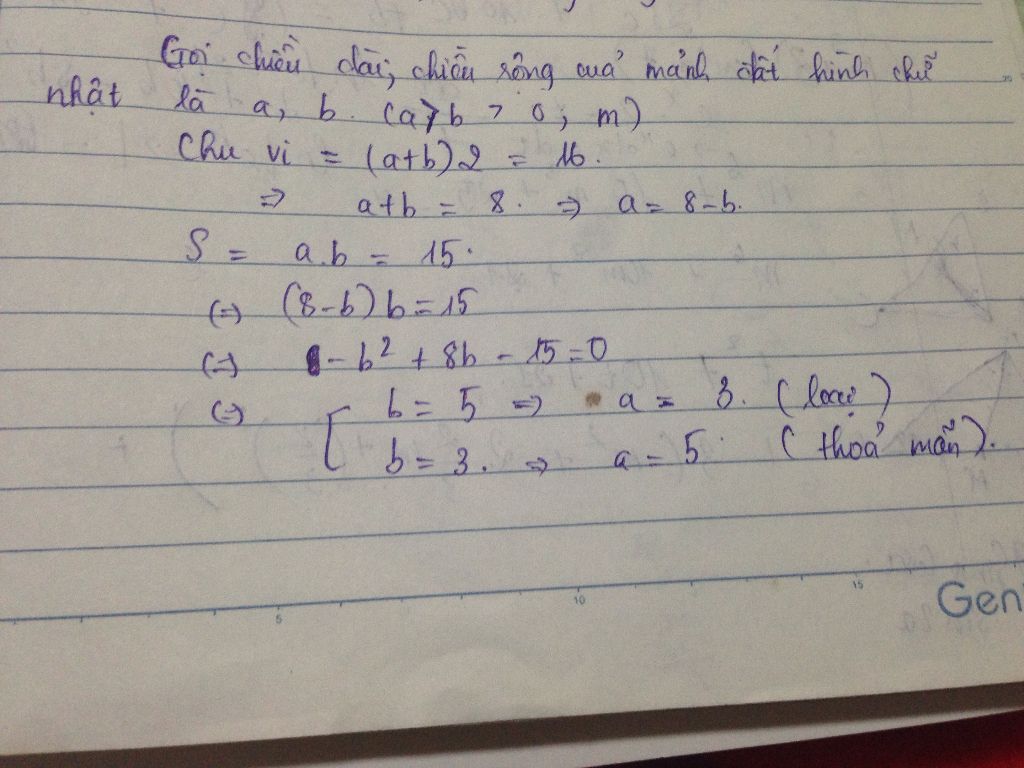 Gọi chiều dài, chiều rộng cuả mảnh đất hình chữ
nhật là a, b. (a > b > 0; m)
Chu vi = (a+b)2 = 16.
=> a+b = 8. => a = 8-b.
S = a.b = 15.
(=) (8-b)b = 15
(=) -b² + 8b - 15 = 0
(=) [ b = 5 => a = 3. (loại)
b = 3. => a = 5. (thoả mãn).
5 10 15
Gen